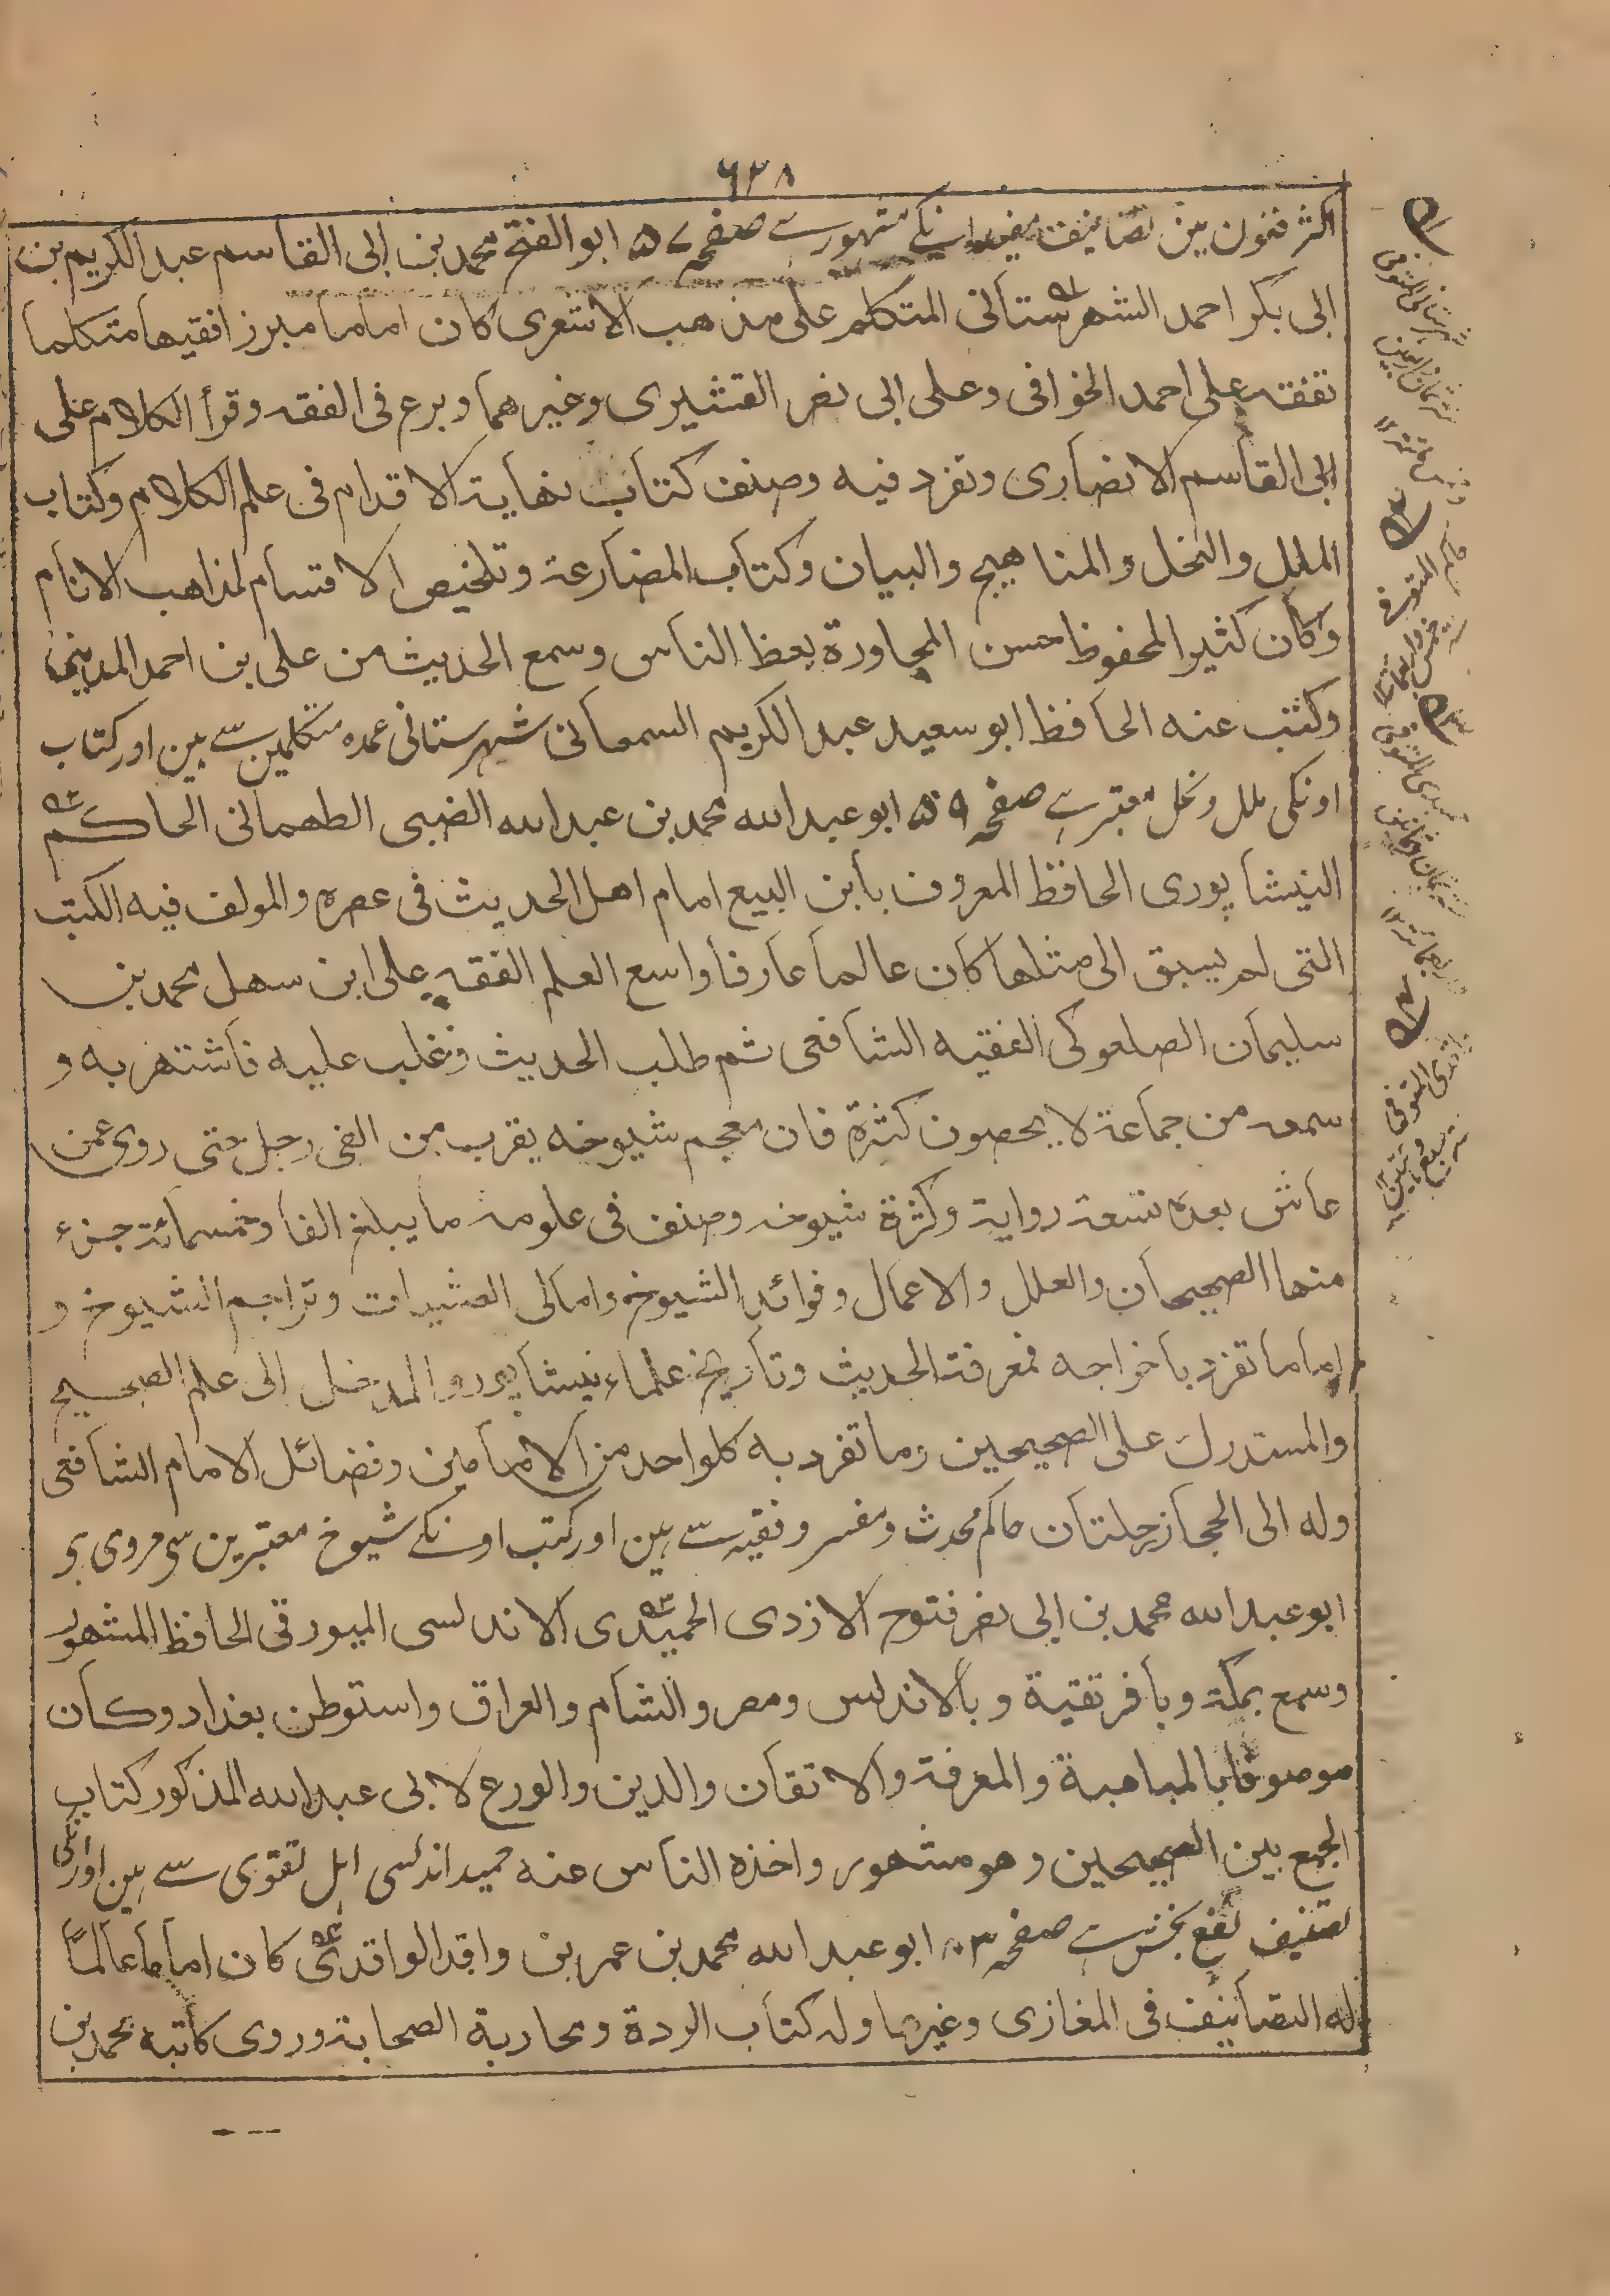 ٦٢٨
اکثر فنون مین تصانیف مفیدہ انکے مشہور ہے صفحہ ٥٧ ابو الفتح محمد بن ابی القاسم عبد الکریم بن
ابی بکر احمد الشهرستانی المتکلم علی مذهب الاشعری کان اماما مبرزا فقیها متکلما
تفقه علی احمد الخوافی وعلی ابی نصر القشیری وغیرهما وبرع فی الفقه وقرأ الکلام علی
ابی القاسم الانصاری وتفرد فیه وصنف کتاب نهایة الاقدام فی علم الکلام وکتاب
الملل والنحل والمناهیج والبیان وکتاب المضارعة وتلخیص الاقسام لمذاهب الانام
وکان کثیر المحفوظ حسن المحاورة یعظ الناس وسمع الحدیث من علی بن احمد المدینی
وکتب عنه الحافظ ابو سعید عبد الکریم السمعانی شہرستانی عمدہ متکلمین سے ہین اور کتاب
اونکی ملل و نحل معتبر ہے صفحہ ٥٩ ابو عبد الله محمد بن عبد الله الضبی الطهمانی الحاکم
النیشاپوری الحافظ المعروف بابن البیع امام اهل الحدیث فی عصره والمولف فیه الکتب
التی لم یسبق الی مثلها کان عالما عارفا واسع العلم الفقه علی ابن سهل محمد بن
سلیمان الصلعوکی الفقیه الشافعی ثم طلب الحدیث وغلب علیه فاشتهر به و
سمعه من جماعة لا یحصون کثرة فان معجم شیوخه یقرب من الفی رجل حتی روی عمن
عاش بعده لسعة روایة وکثرة شیوخه وصنف فی علومه ما یبلغ الفا وخمسمائة جزء
منها الصحیحان والعلل والاعمال وفوائد الشیوخ وامالی العشیات وتراجم الشیوخ و
اماما تفرد باخراجه فمعرفة الحدیث وتاریخ علماء نیشاپور والمدخل الی علم الصحیح
والمستدرک علی الصحیحین وما تفرد به کلواحد من الامامین وفضائل الامام الشافعی
وله الی الحجاز رحلتان حاکم محدث و مفسر و فقیہ سے ہین اور کتب اونکے شیوخ معتبرین سی مروی ہی
ابو عبد الله محمد بن ابی نصر فتوح الازدی الحمیدی الاندلسی المیورقی الحافظ المشهور
وسمع بمکة وبافریقیة وبالاندلس ومصر والشام والعراق واستوطن بغداد وکان
موصوفا بالمباهبة والمعرفة والاتقان والدین والورع لابی عبد الله المذکور کتاب
الجمع بین الصحیحین وهو مشهور واخذه الناس عنه حمید اندلسی اہل تقوی سے ہین اور انکی
تصنیف نفع بخش ہے صفحہ ٨٠٣ ابو عبد الله محمد بن عمر بن واقد الواقدی کان اماما عالما
له التصانیف فی المغازی وغیرها وله کتاب الردة ومحاربة الصحابة وروی کاتبه محمد بن
شہرستانی المتوفی
حاکم المتوفی
خمس واربعمائة
حمیدی المتوفی
واقدی المتوفی
سنہ سبع ومأتین